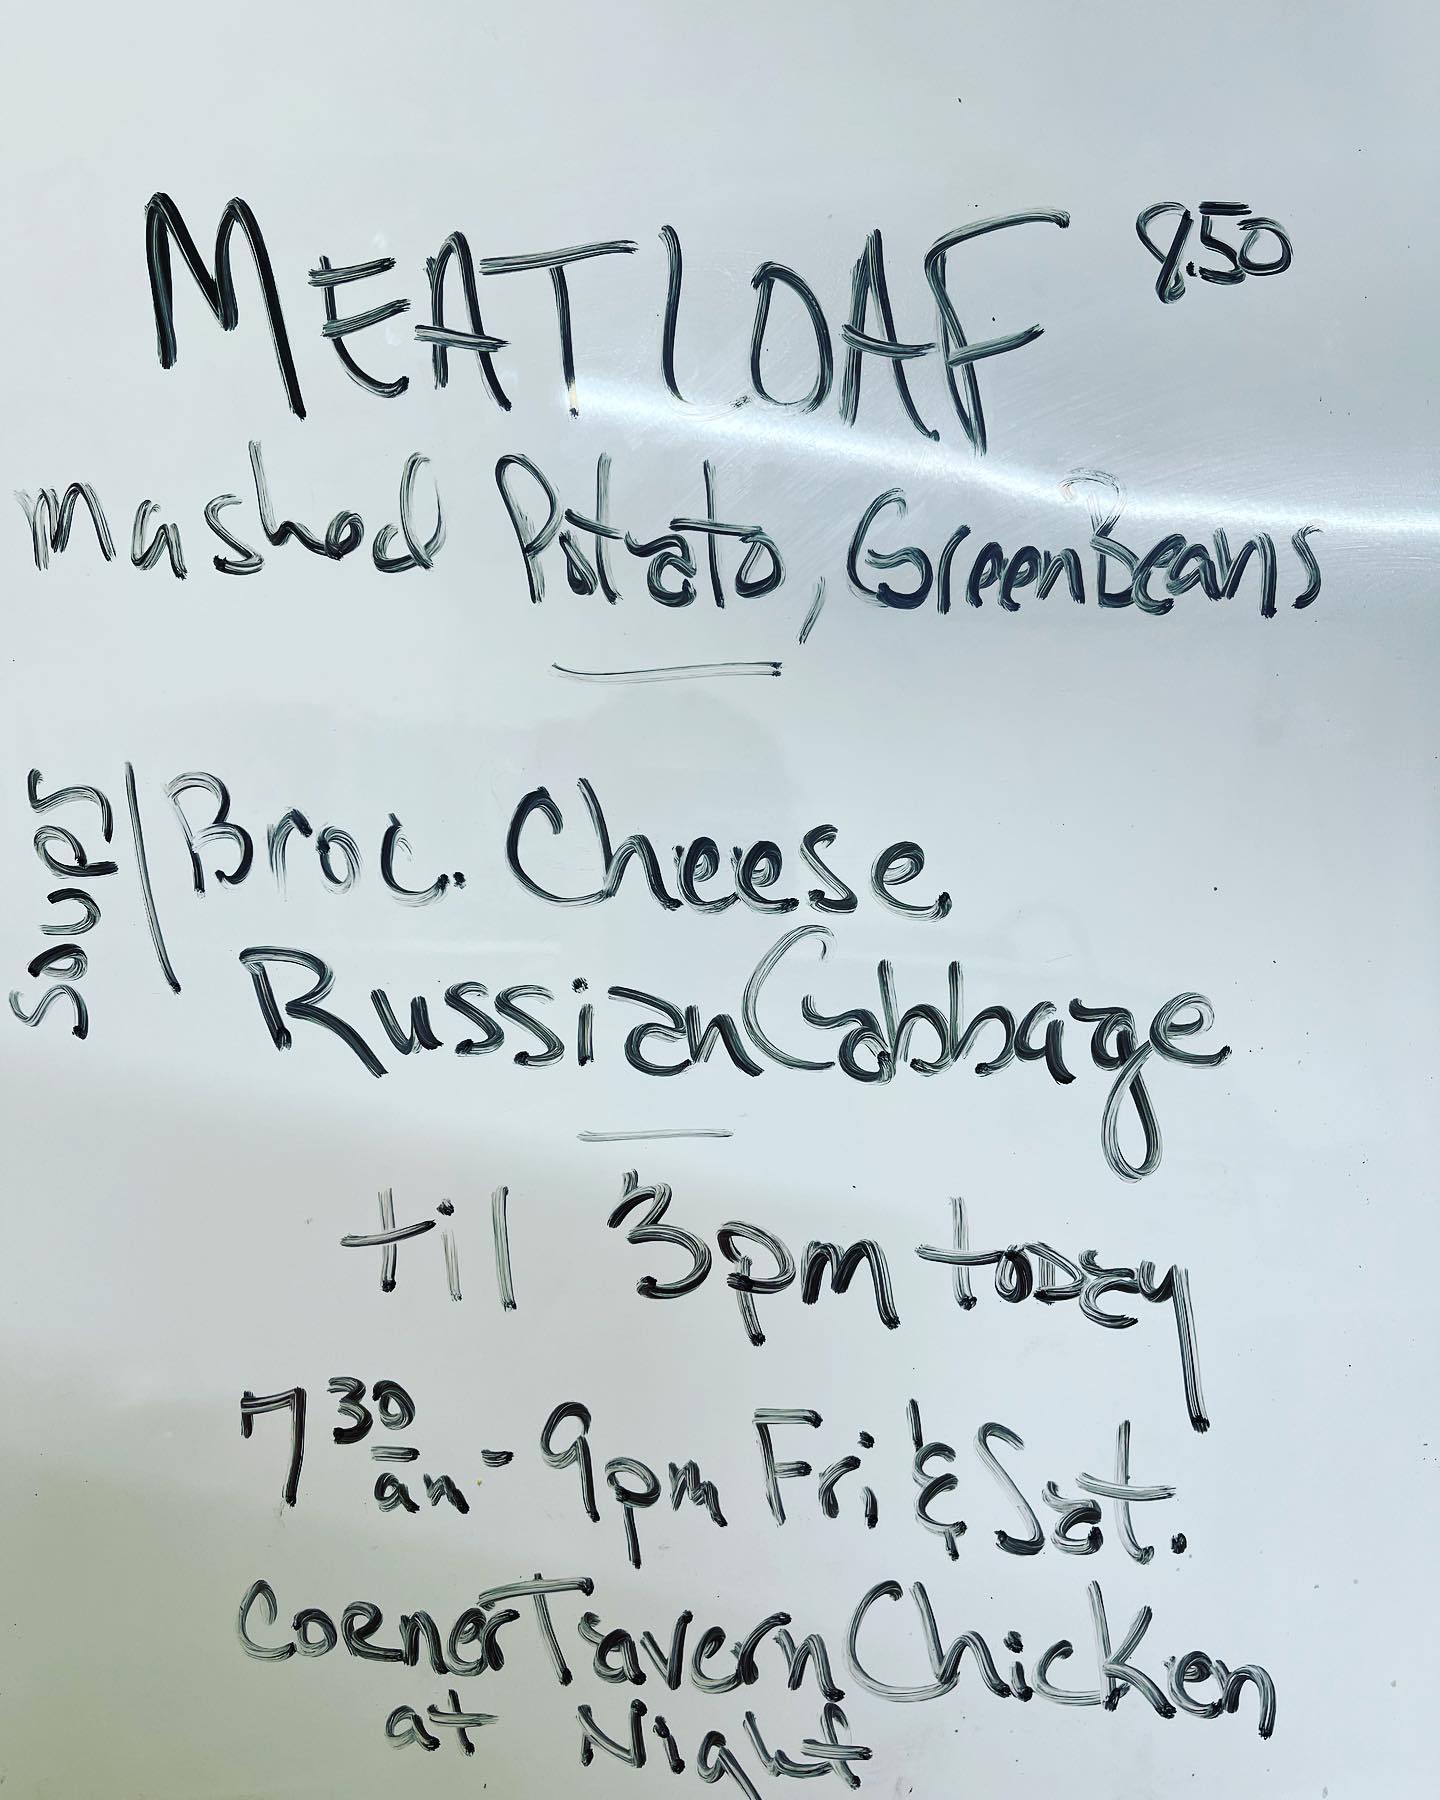 MEATLOAF 8.50
Mashed Potato, Green Beans
Soups
Broc. Cheese
Russian Cabbage
til 3pm today
7 30 am - 9pm Fri, & Sat.
Corner Tavern Chicken
at Night